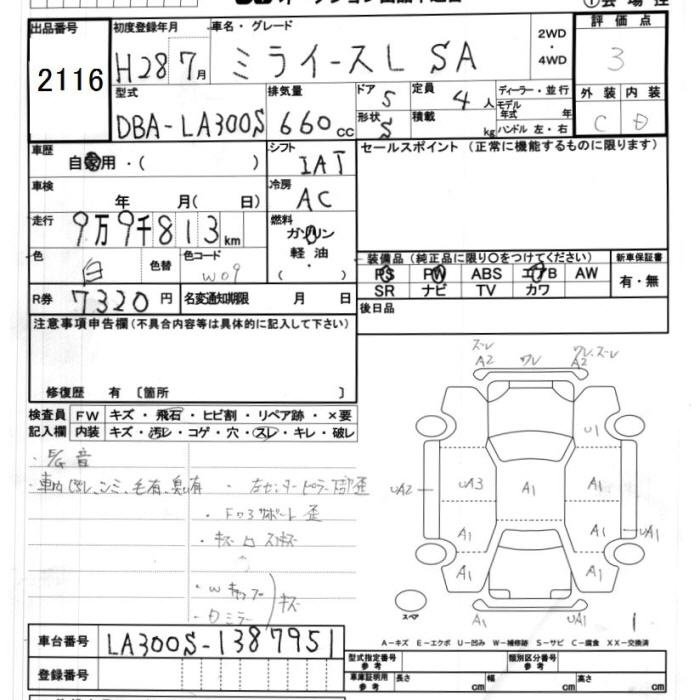 出品番号 初度登録年月 車名・グレード 2WD・4WD 評価点
2116 H28 7月 ミライースL SA 3
型式 排気量 ドア 5 定員 4人 ディーラー・並行 外装 内装
DBA-LA300S 660cc 形状 S 積載 kg モデル年式 年 ハンドル 左・右 C D
車歴 自家用・( ) シフト IAT セールスポイント (正常に機能するものに限ります)
車検 年 月( 日) 冷房 AC
走行 9万9千813km 燃料 ガソリン 軽油・( )
色 白 色替 色コード W09 装備品 (純正品に限り〇をつけてください) 新車保証書
PS PW ABS エアB AW 有・無
SR ナビ TV カワ
R券 7320円 名変通知期限 月 日 後日品
注意事項申告欄(不具合内容等は具体的に記入して下さい)
修復歴 有 〔箇所 〕
検査員記入欄 FW キズ・飛石・ヒビ割・リペア跡・×要
内装 キズ・汚レ・コゲ・穴・スレ・キレ・破レ
ズレ A2 ワレ ワレ.ズレ A2
U1
UA2 UA3 A1 A1
A1 A1 UA1
A1 A1
A1 UA1
スペア 1
音
シミ、毛有、臭い有
歪
キズ
A−キズ E−エクボ U−凹み W−補修跡 S−サビ C−腐食 XX−交換済
車台番号 LA300S-1387951
型式指定番号 参考 類別区分番号 参考
登録番号 車庫証明用 参考 長さ cm 幅 cm 高さ cm